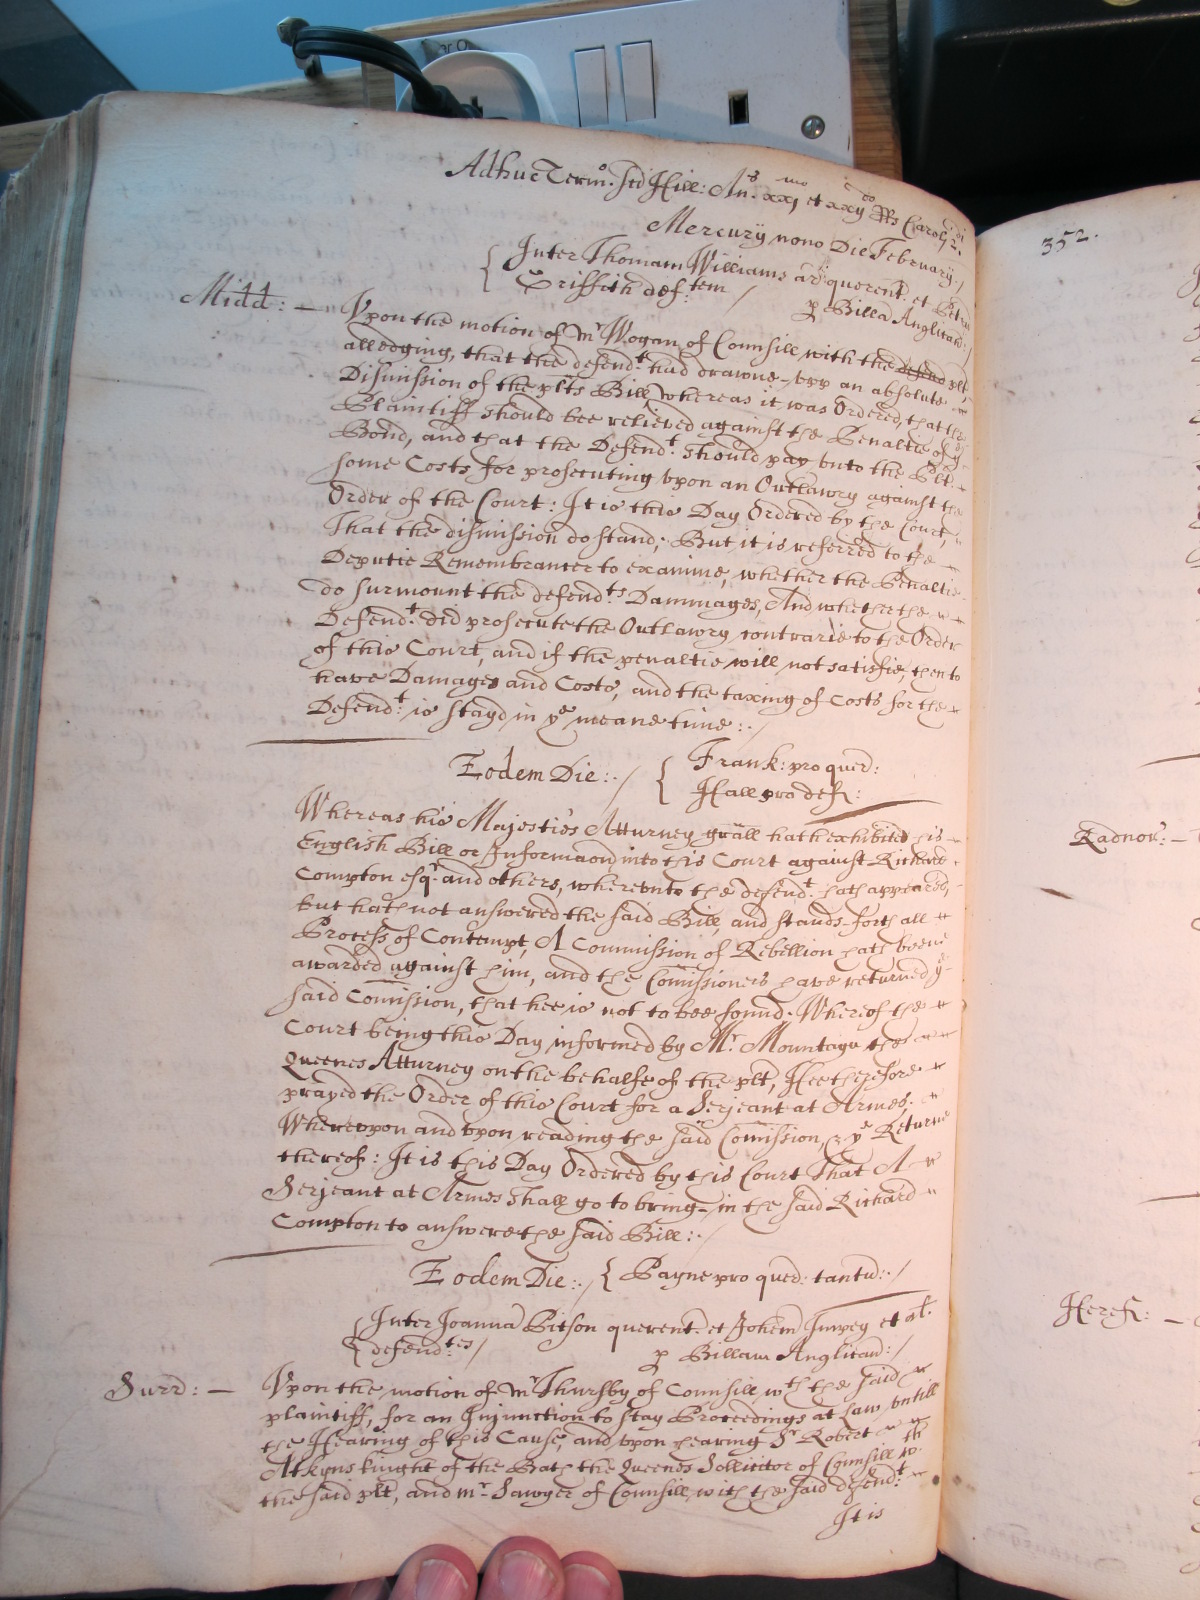 Adhuc Termo. Scd Hill: Ans. xxjmo et xxijdo RRs Caroli 2di.
Mercurÿ nono Die Februarÿ./
Inter Thomam Williams ar: querent. et Petru
Griffith def:tem /
p Billa Anglican:/
Midd: — Vpon the motion of mr Wogan of Counsill with the defend plt,
alledging, that the defend:t had drawne-vpp an absolute
Dismission of the plts Bill, whereas it was Ordered, that the
Plaintiff should bee relieved against the Penaltie of ye
Bond, and that the Defend:t should pay vnto the Plt.
some Costs for prosecuting vpon an Outlawry against the
Order of the Court: It is this Day Ordered by the Court,
That the dismission do stand; But it is referred to the
Deputie Remembrancer to examine, whether the Penaltie
do surmount the defend:ts Dammages, And whether the
Defend:t did prosecute the Outlawry contrarie to the Order
of this Court, and if the penaltie will not satisfie, then to
have Damages and Costs, and the taxing of Costs for the
Defend:t is stayd in ye meane time:./
Eodem Die:./ Frank: pro quer:
Hall pro def:
Whereas his Majesties Atturney grall hath exhibited his
English Bill or Informaon into this Court against Richard
Compton esqr. and others, wherevnto the defend:t hath appeared,
but hath not answered the said Bill, and stands-forth all
Process of Contempt, A Commission of Rebellion hath beene
awarded against him, and the Comissioners have returned ye
said Comission, that hee is not to bee found. Whereof the
Court being this Day informed by Mr. Mountagu the
Queenes Atturney on the behalfe of the plt, Hee therefore
prayed the Order of this Court for a Serjeant at Armes.
Wherevpon and vpon reading the said Comission, & ye Returne
thereof: It is this Day Ordered by this Court That A
Serjeant at Armes shall go to bring-in the said Richard
Compton to answere the said Bill:./
Eodem Die:./ Payne pro quer: tantu:./
Inter Joanna Pitson querent. et Johem et al.
defend:tes /
p Billam Anglican:/
Surr: — Vpon the motion of mr Thursby of Counsill, wth the said
plaintiff, for an Injunction to stay Proceedings at Law vntill
the Hearing of this Cause, and vpon hearing Sr Robert
Atkyns knight of the Bath the Queenes Sollicitor of Counsill wth
the said plt, and mr Sawyer of Counsill, with the said defend:t
It is
352.
Radnor: —
Heref: —